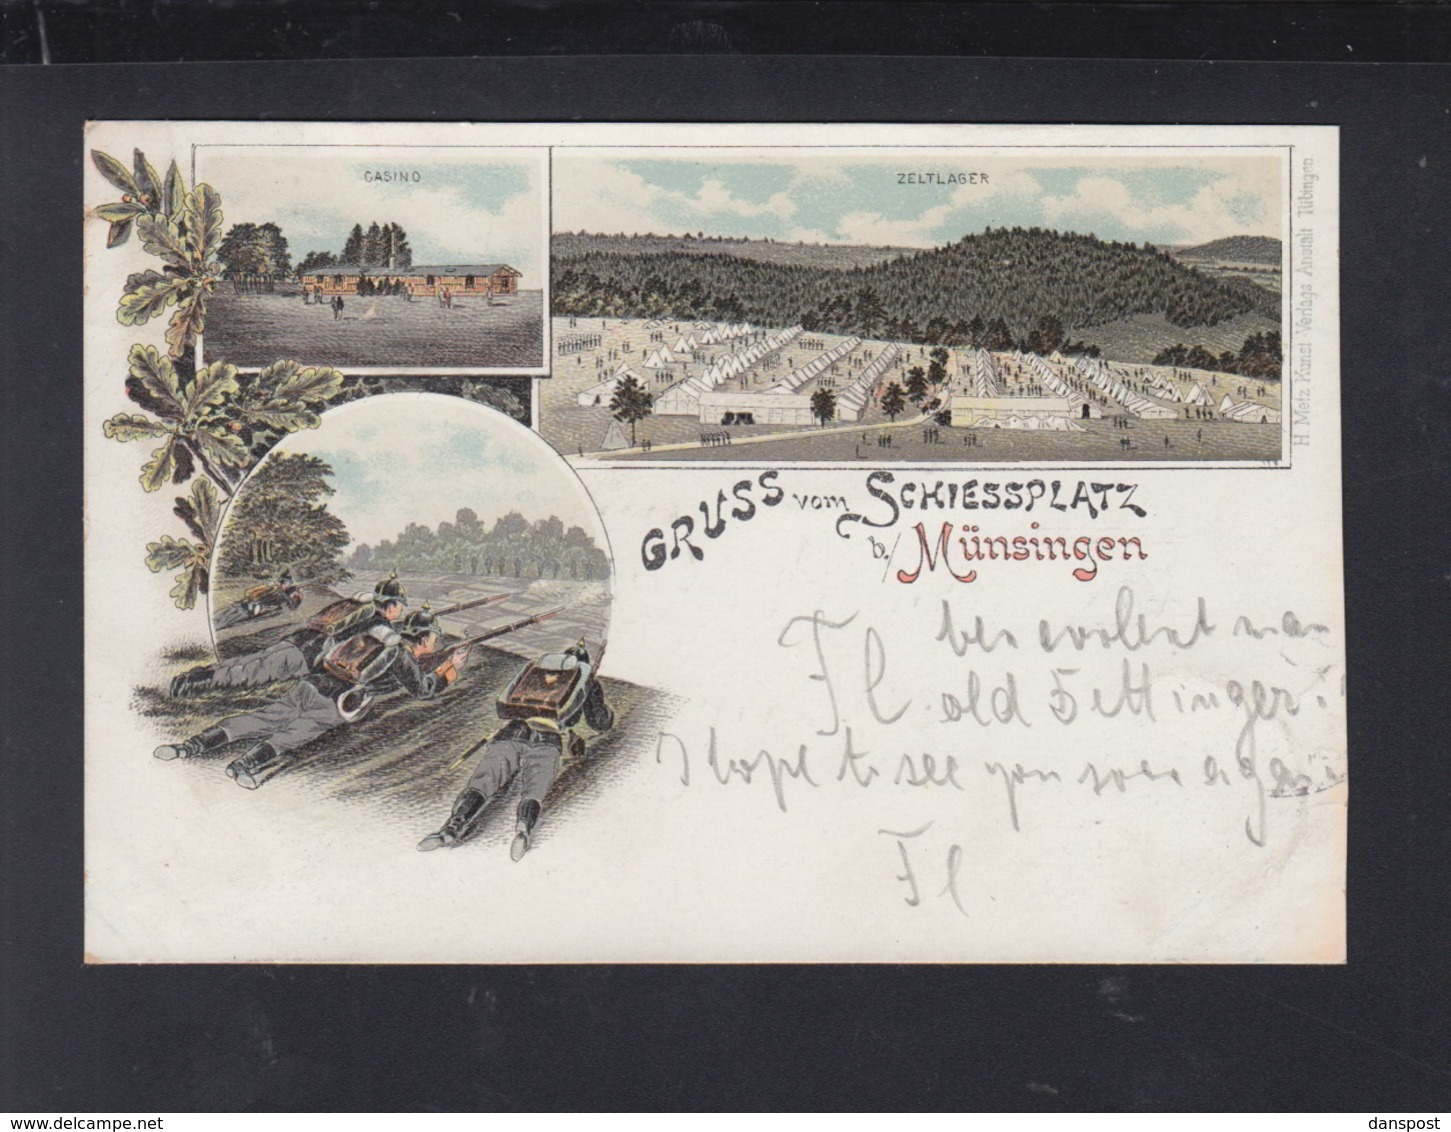 CASINO
ZELTLAGER
H. Metz Kunst Verlags Anstalt Tübingen.
GRUSS vom SCHIESSPLATZ
b./ Münsingen
Fl. old
I hope to see you soon again
Fl.
www.delcampe.net
danspost